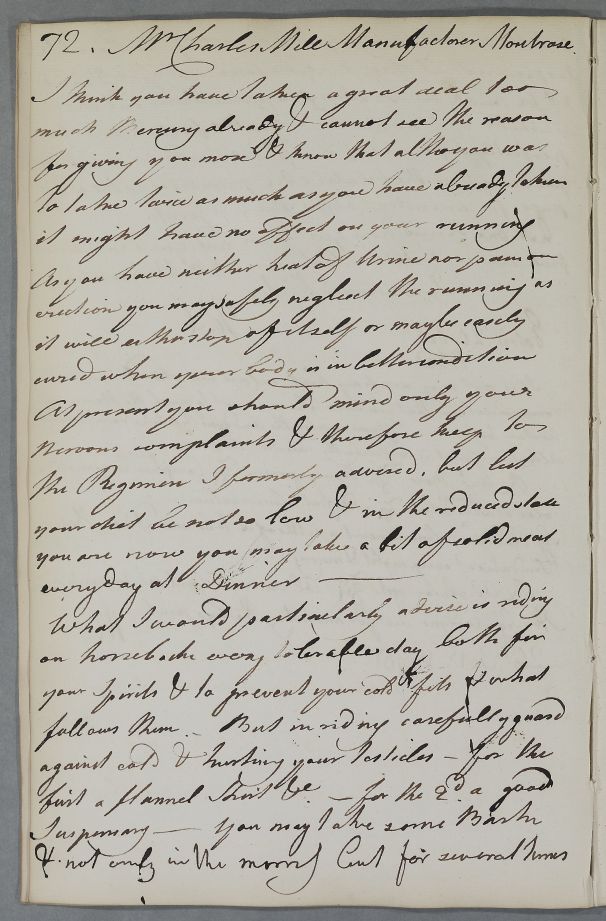 72. Mr Charles Mill Manufacturer Montrose.
I think you have taken a great deal too
much Mercury already & cannot see the reason
for giving you more & know that altho you was
to take twice as much as you have already taken
it might have no effect on your running
As you have neither heat of Urine nor pain on
erection you may safely neglect the running as
it will either stop of itself or may be easily
cured when your body is in better condition
At present you should mind only your
Nervous complaints & therefore keep to
the Regimen I formerly advised, but let
your diet be not so low & in the reduced state
you are now you may take a bit of solid meat
every day at Dinner —
What I would particularly advise is riding
on horseback every tolerable day both for
your Spirits & to prevent your cold fits & what
follows them — But in riding carefully guard
against cold & hurting your Testicles — for the
first a flannel Shirt &c — for the 2d a good
Suspensory — you may take some Bark
& not only in the morng but for several times